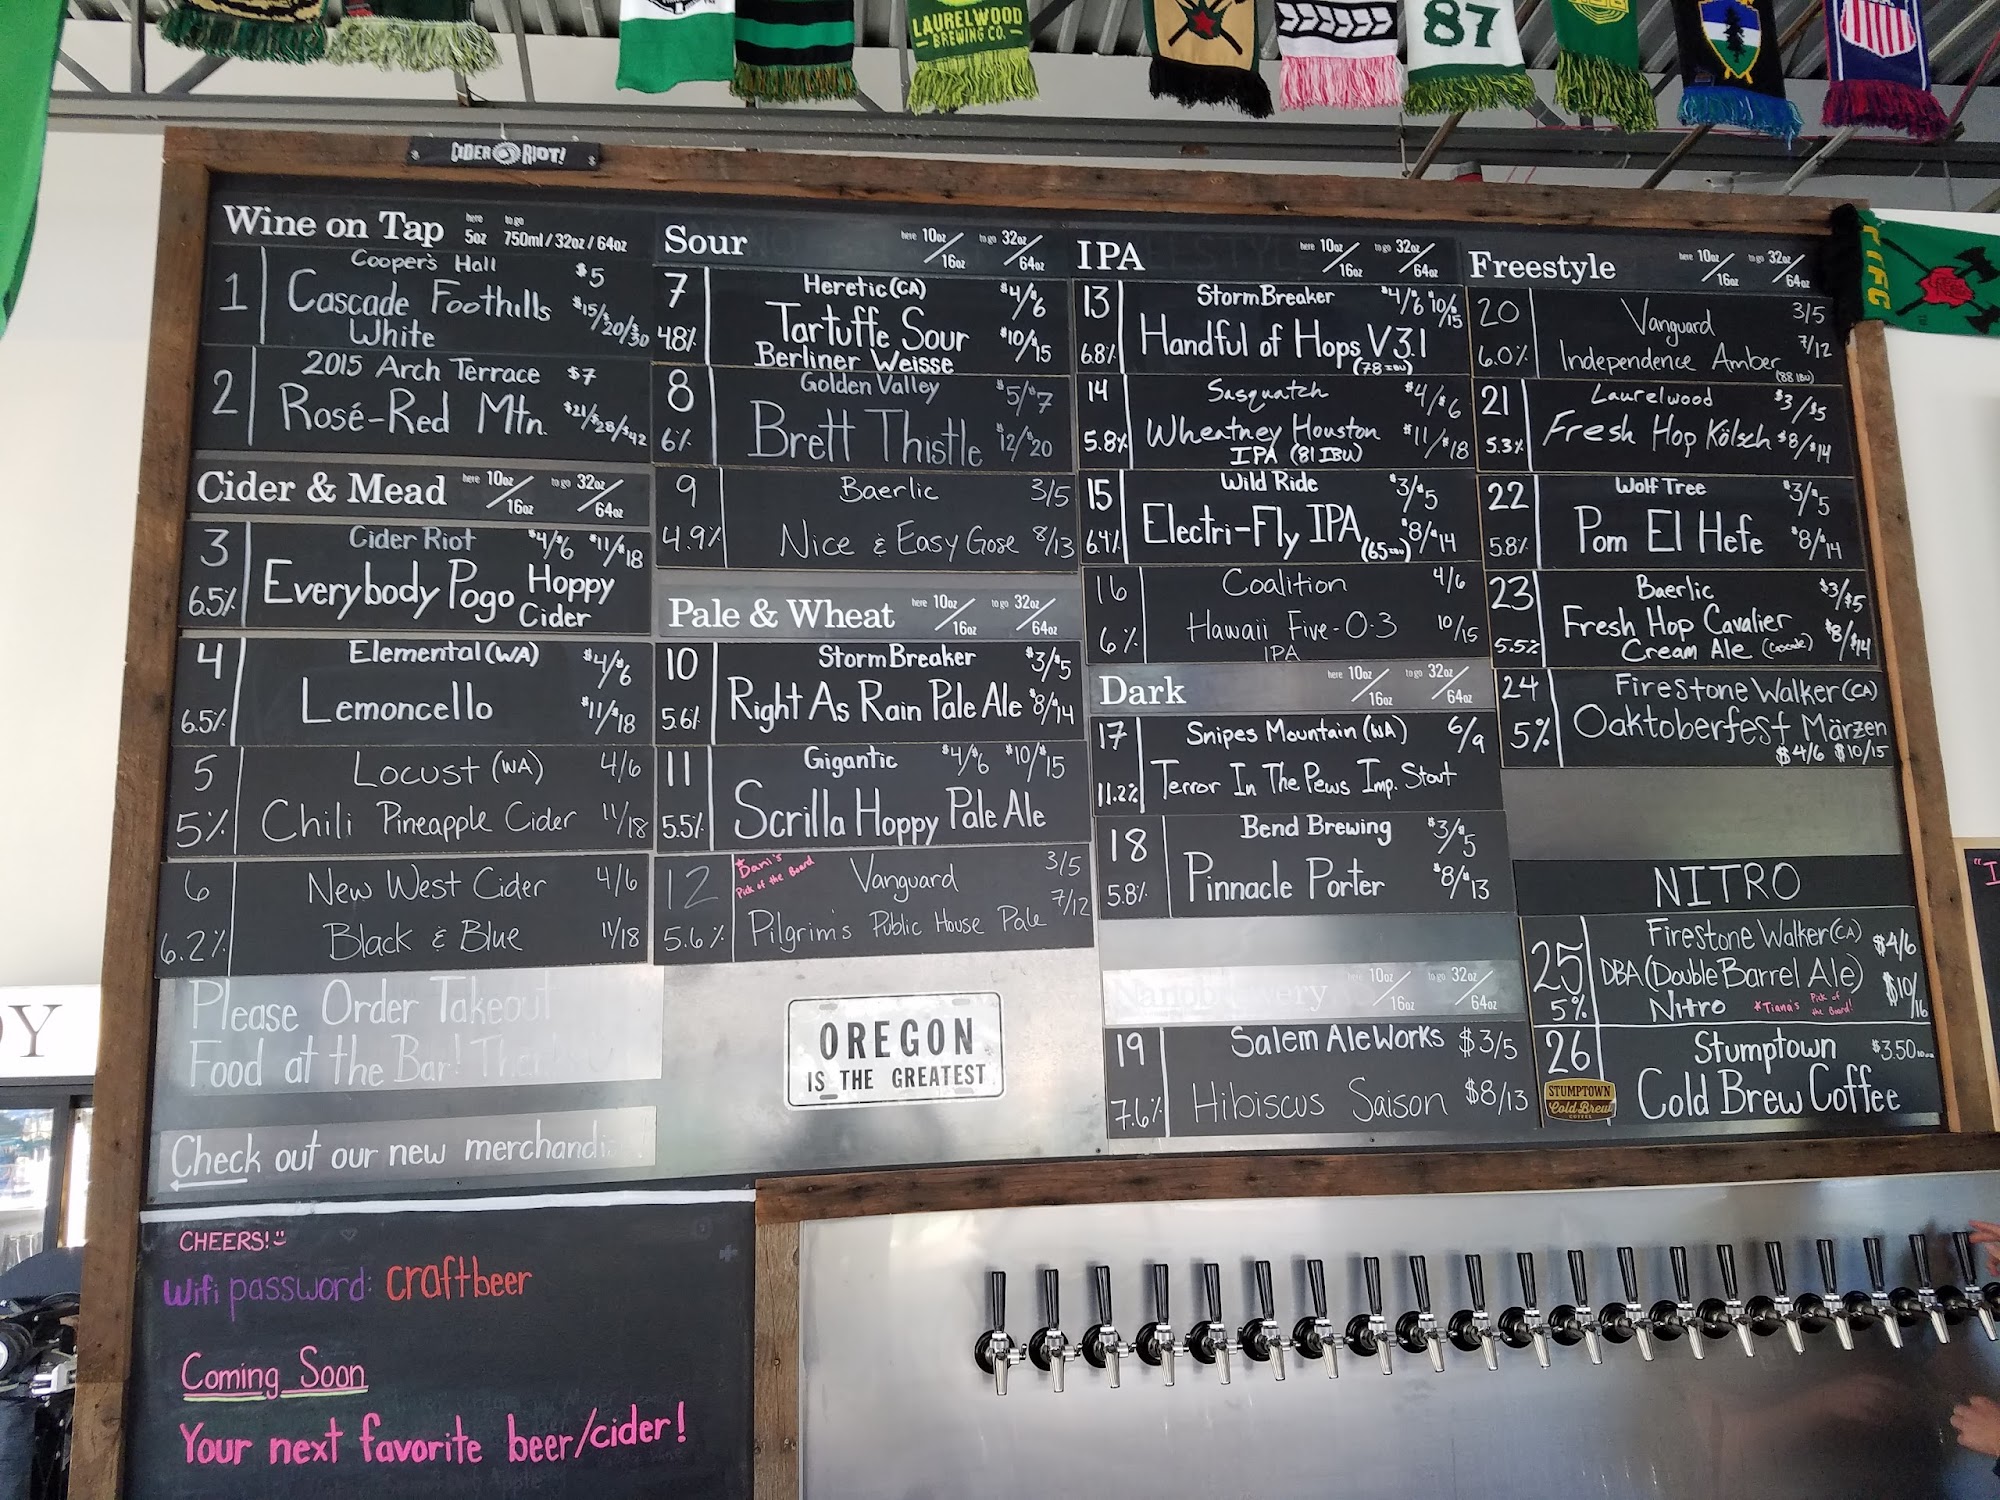 LAURELWOOD
BREWING CO.
87
CIDER RIOT!
Wine on Tap here 5oz to go 750ml / 32oz / 64oz
1 Cooper's Hall $5
Cascade Foothills $15/$20/$30
White
2 2015 Arch Terrace $7
Rosé-Red Mtn. $21/$28/$42
Cider & Mead here 10oz/16oz to go 32oz/64oz
3 Cider Riot $4/$6 $11/$18
6.5% Everybody Pogo Hoppy Cider
4 Elemental (WA) $4/$6
6.5% Lemoncello $11/$18
5 Locust (WA) 4/6
5% Chili Pineapple Cider 11/18
6 New West Cider 4/6
6.2% Black & Blue 11/18
Please Order Takeout
Food at the Bar!
Check out our new
CHEERS!
Wifi password: craftbeer
Coming Soon
Your next favorite beer/cider!
Sour here 10oz/16oz to go 32oz/64oz
7 Heretic (CA) $4/$6
4.8% Tartuffe Sour $10/$15
Berliner Weisse
8 Golden Valley $5/$7
6% Brett Thistle $12/$20
9 Baerlic 3/5
4.9% Nice & Easy Gose 8/13
Pale & Wheat here 10oz/16oz to go 32oz/64oz
10 StormBreaker $3/$5
5.6% Right As Rain Pale Ale $8/$14
11 Gigantic $4/$6 $10/$15
5.5% Scrilla Hoppy Pale Ale
12 *Dani's Pick of the Board Vanguard 3/5
5.6% Pilgrim's Public House Pale 7/12
OREGON
IS THE GREATEST
IPA here 10oz/16oz to go 32oz/64oz
13 StormBreaker $4/$6 $10/$15
6.8% Handful of Hops V3.1
(78 IBU)
14 Sasquatch $4/$6
5.8% Wheatney Houston $11/$18
IPA (81 IBU)
15 Wild Ride $3/$5
6.4% Electri-Fly IPA (65 IBU) $8/$14
16 Coalition 4/6
6% Hawaii Five-O-3 10/15
IPA
Dark here 10oz/16oz to go 32oz/64oz
17 Snipes Mountain (WA) 6/9
11.2% Terror In The Pews Imp. Stout
18 Bend Brewing $3/$5
5.8% Pinnacle Porter $8/$13
Nanobrewery here 10oz/16oz to go 32oz/64oz
19 Salem Ale Works $3/5
7.6% Hibiscus Saison $8/13
Freestyle here 10oz/16oz to go 32oz/64oz
20 Vanguard 3/5
6.0% Independence Amber 7/12
(88 IBU)
21 Laurelwood $3/$5
5.3% Fresh Hop Kölsch $8/$14
22 Wolf Tree $3/$5
5.8% Pom El Hefe $8/$14
23 Baerlic $3/$5
5.5% Fresh Hop Cavalier $8/$14
Cream Ale (Cascade)
24 Firestone Walker (CA)
5% Oaktoberfest Märzen
$4/6 $10/15
NITRO
25 Firestone Walker (CA) $4/6
DBA (Double Barrel Ale) $10/16
5% Nitro *Tiana's Pick of the Board!
26 Stumptown $3.50
Cold Brew Coffee
STUMPTOWN
Cold Brew
COFFEE